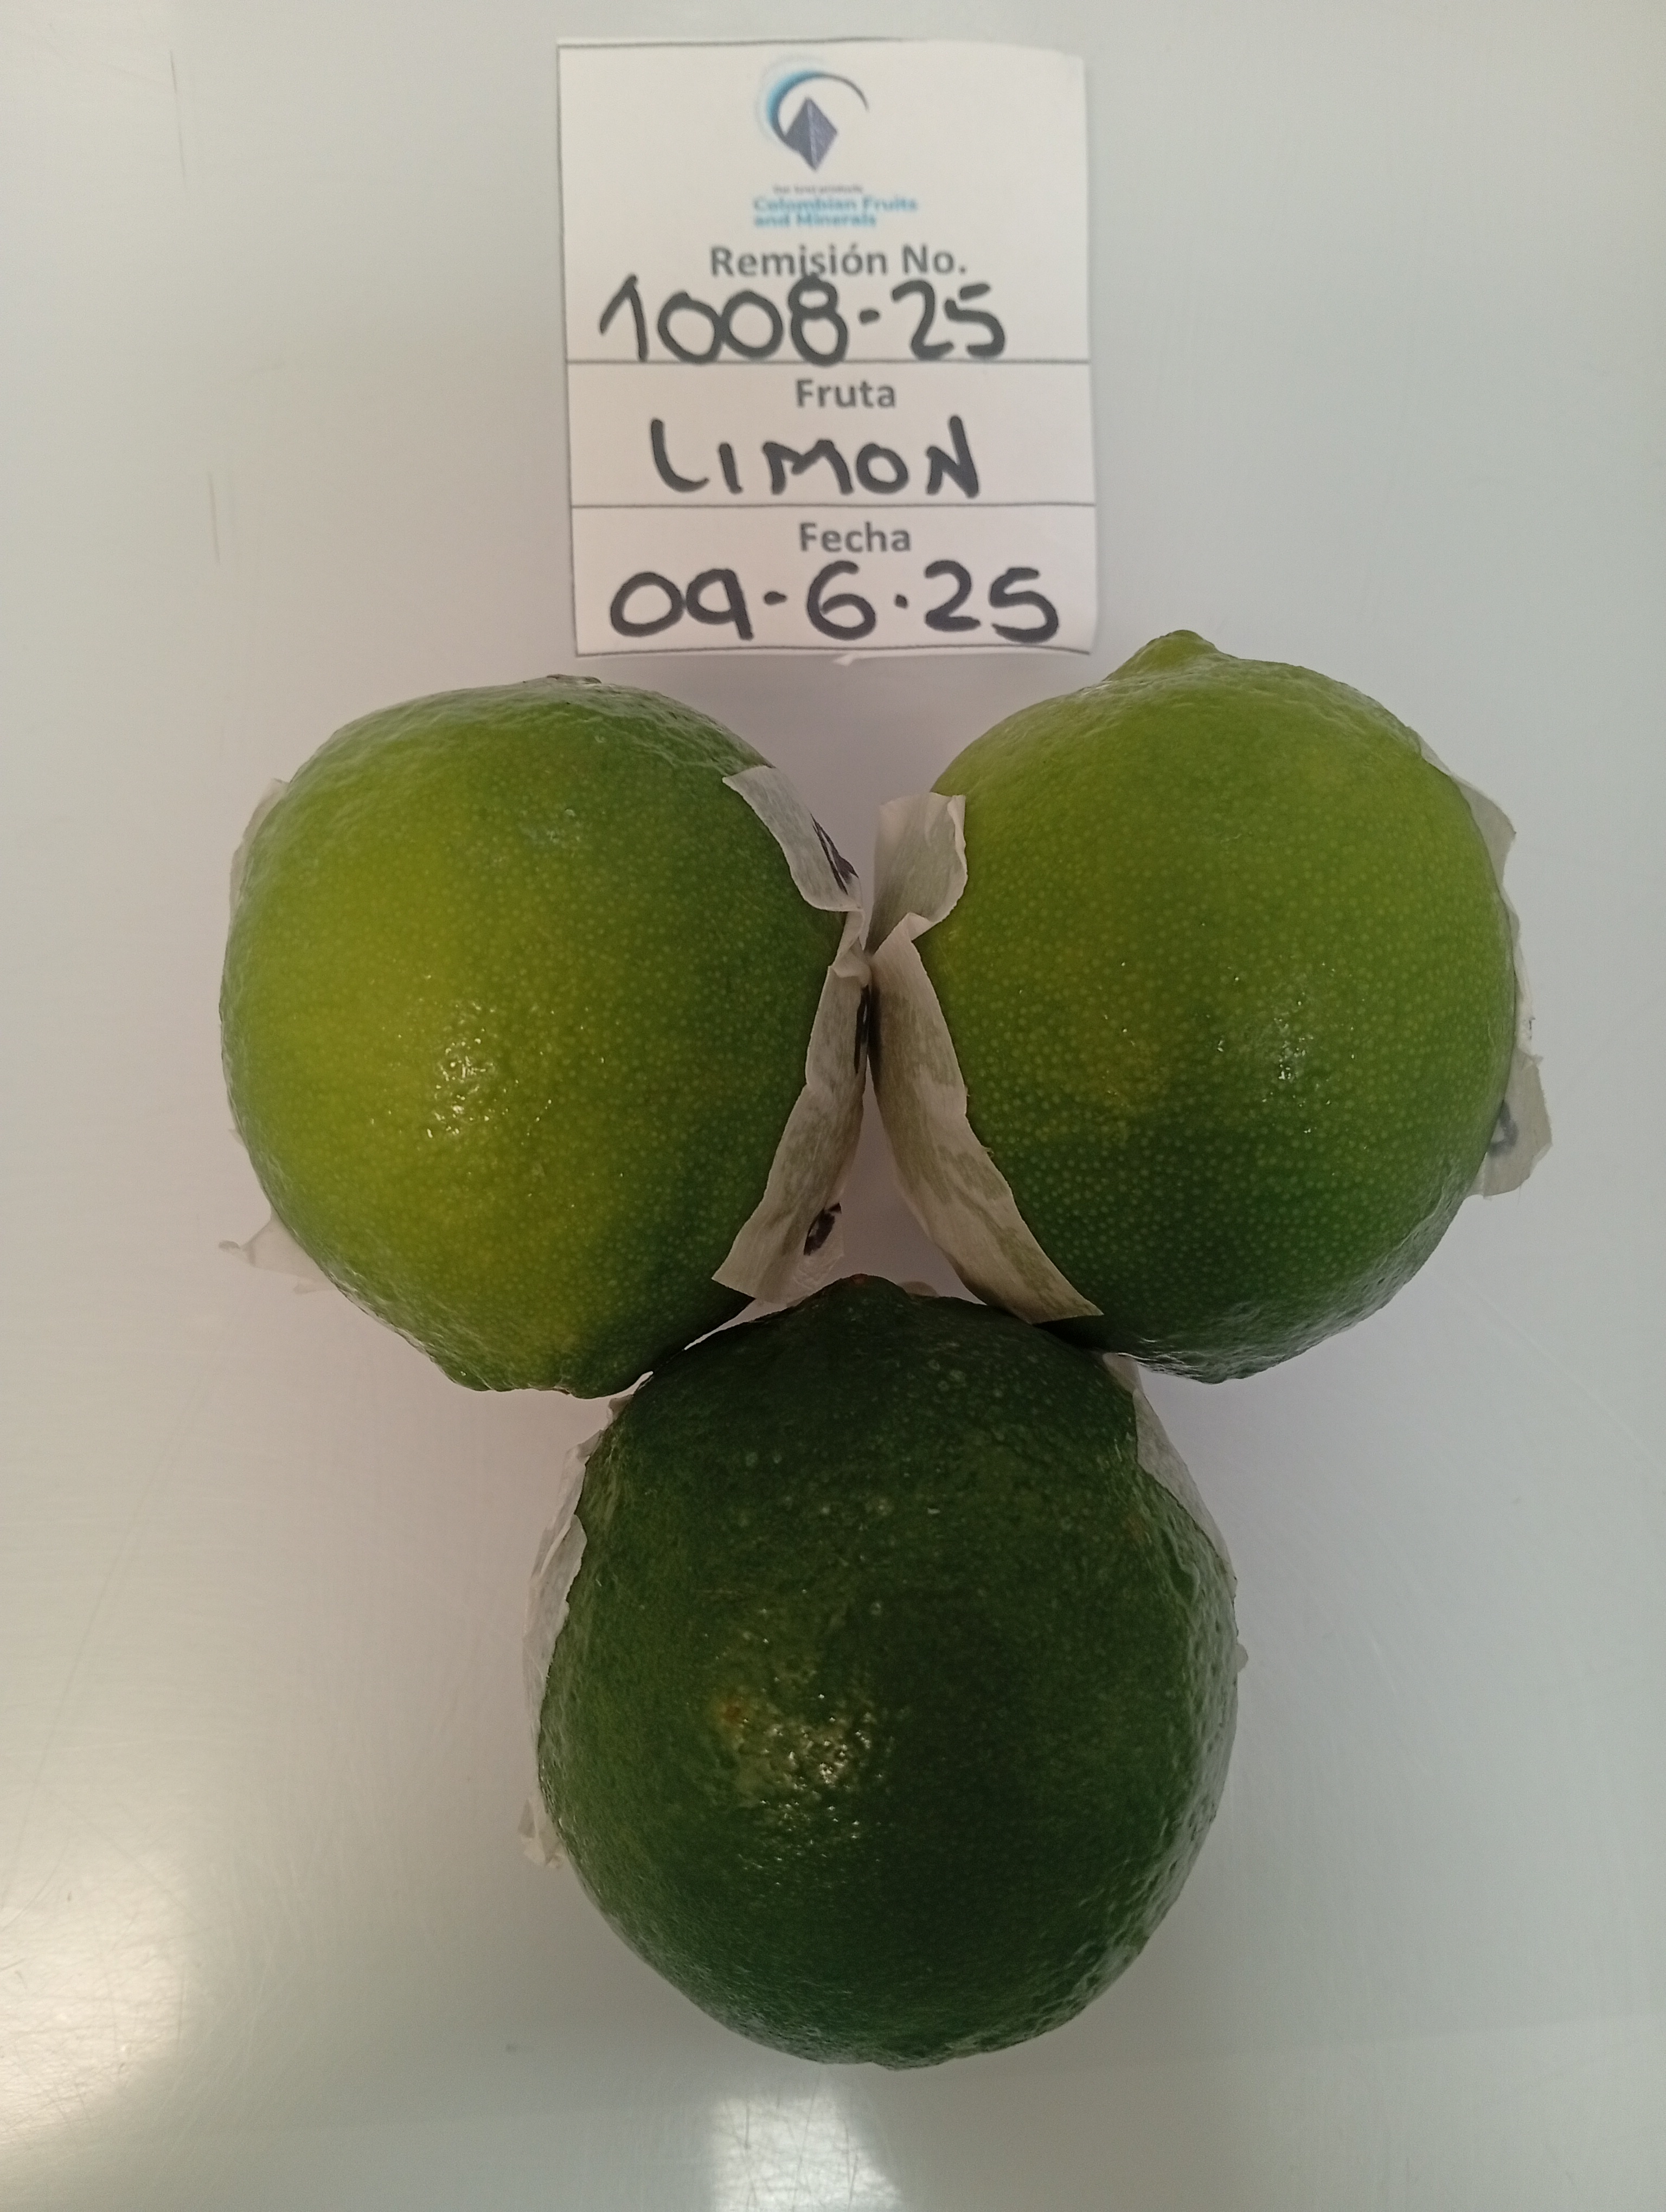 Colombian Fruits
and Minerals
Remisión No.
1008-25
Fruta
LIMON
Fecha
09-6-25